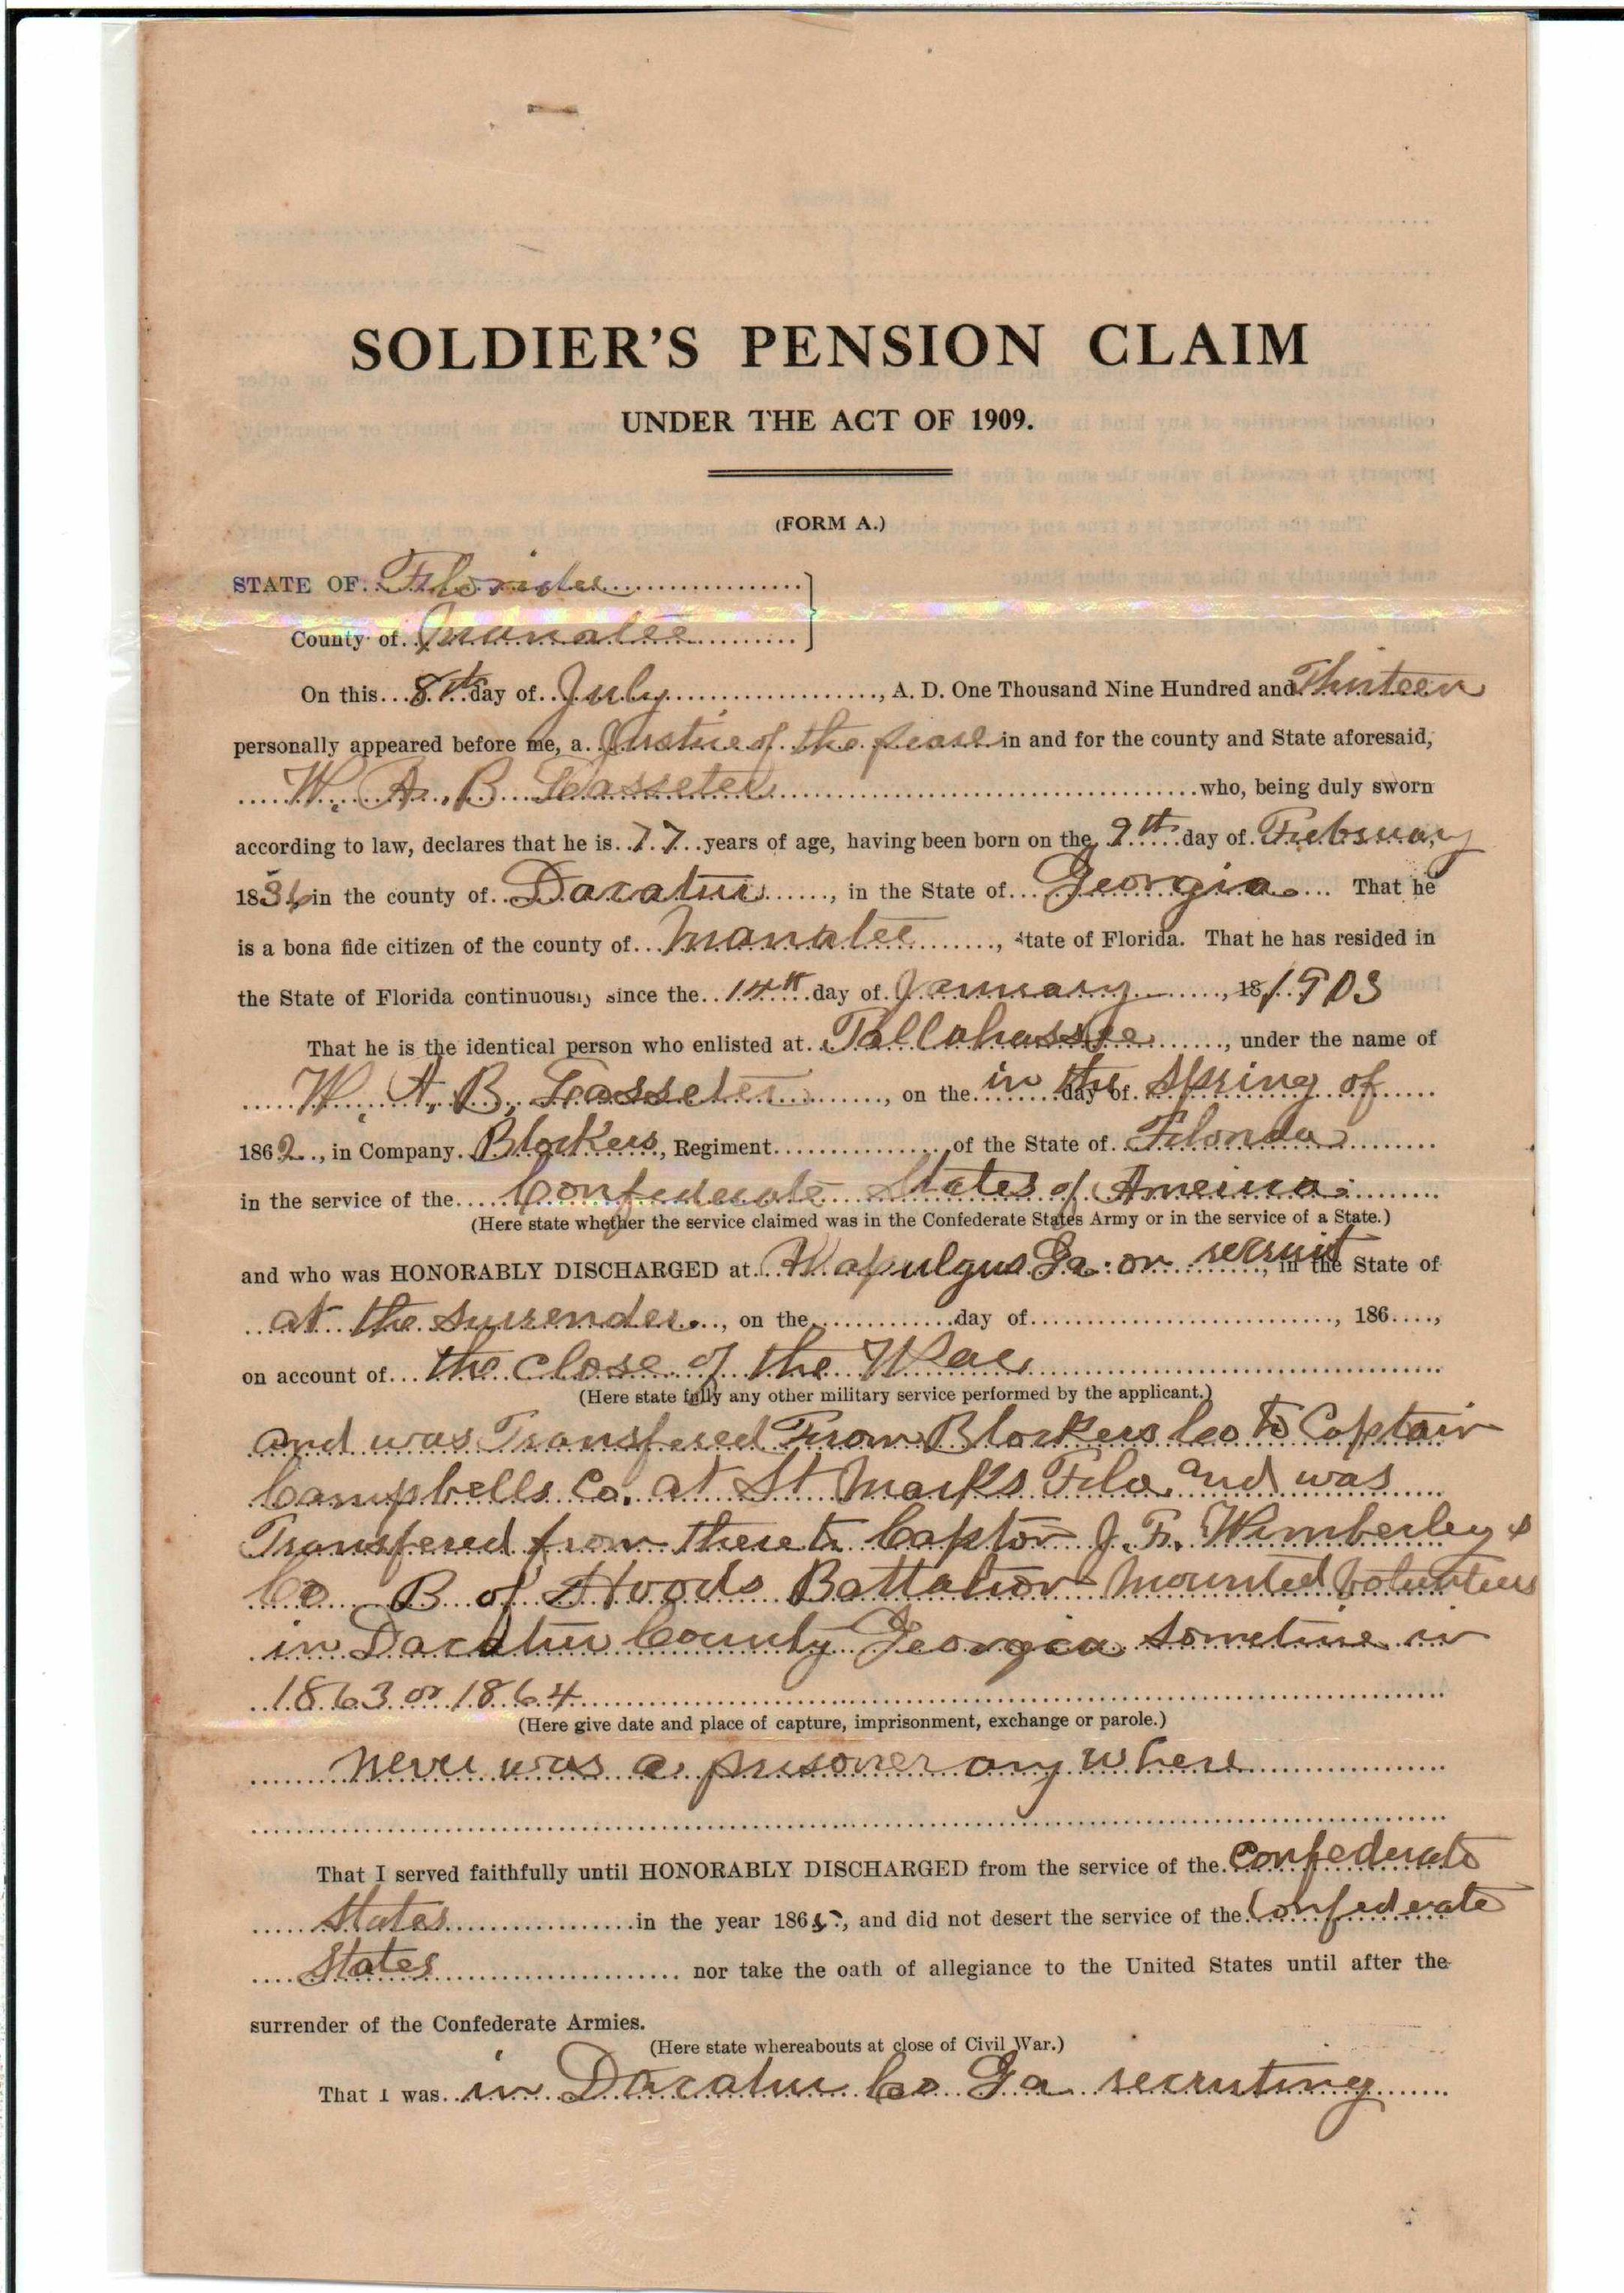 SOLDIER'S PENSION CLAIM
UNDER THE ACT OF 1909.
(FORM A.)
STATE OF Florida
County of Manatee
On this 8th day of July, A. D. One Thousand Nine Hundred and Thirteen
personally appeared before me, a Justice of the pease in and for the county and State aforesaid,
W. A. B. who, being duly sworn
according to law, declares that he is 77 years of age, having been born on the 9th day of Februay
1836 in the county of Dacatur, in the State of Georgia. That he
is a bona fide citizen of the county of Manatee, State of Florida. That he has resided in
the State of Florida continuously since the 14th day of January, 18 1903
That he is the identical person who enlisted at Tallahassee, under the name of
W. A. B. , on the in the day of Spring of
1862, in Company Blockers, Regiment of the State of Florida
in the service of the Confederate States of America.
(Here state whether the service claimed was in the Confederate States Army or in the service of a State.)
and who was HONORABLY DISCHARGED at Ga. on recruit, in the State of
at the surrender., on the day of , 186 ,
on account of the close of the War
(Here state fully any other military service performed by the applicant.)
and was Transfered From Blockers Co to Captain
Campbells Co. at St Marks Fla. and was
Transfered from there to J. F. Wimberleys
Co B of Hoods Battalion Mounted Volunteers
in Dacatur County Georgia sometime in
1863 or 1864
(Here give date and place of capture, imprisonment, exchange or parole.)
never was a prisoner any where
That I served faithfully until HONORABLY DISCHARGED from the service of the Confederate
States in the year 1865, and did not desert the service of the Confederate
States nor take the oath of allegiance to the United States until after the
surrender of the Confederate Armies.
(Here state whereabouts at close of Civil War.)
That I was in Dacatur Co Ga recruting